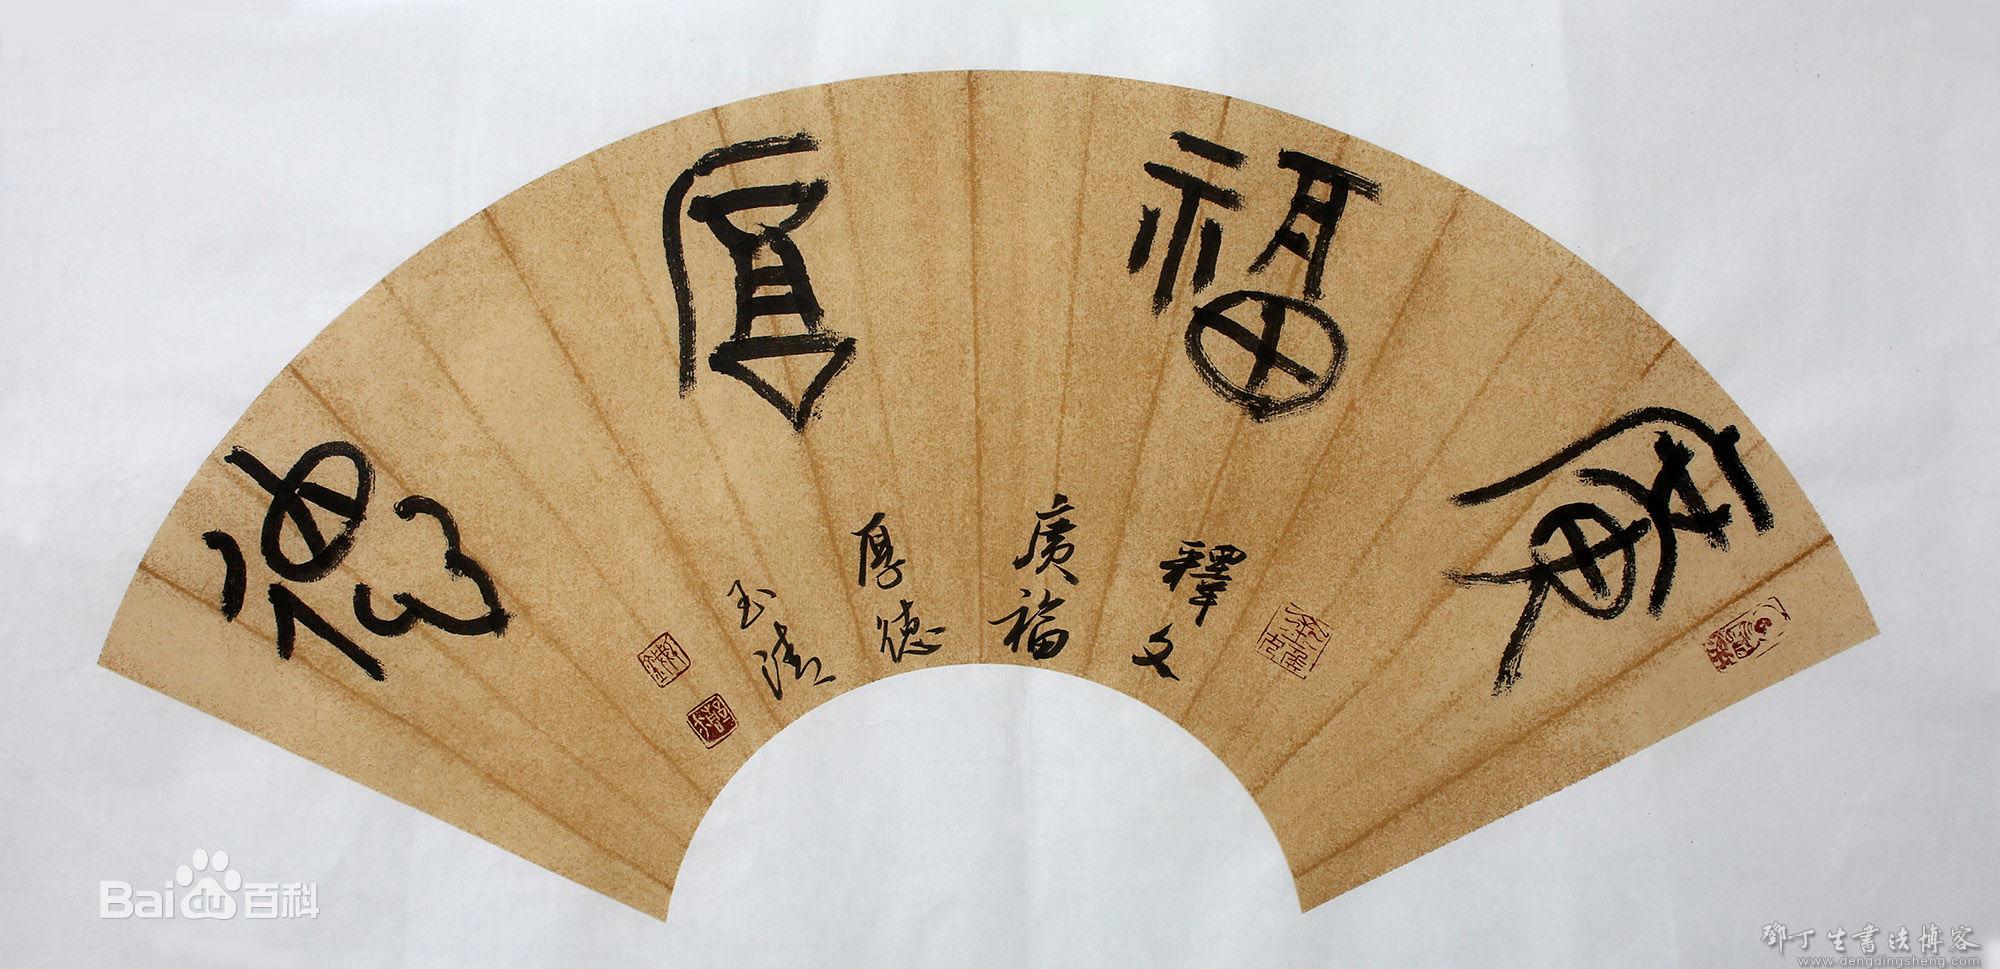 廣福厚德
釋文
廣福
厚德
玉清
Bai百科
鄧丁生書法博客
www.dengdingsheng.com